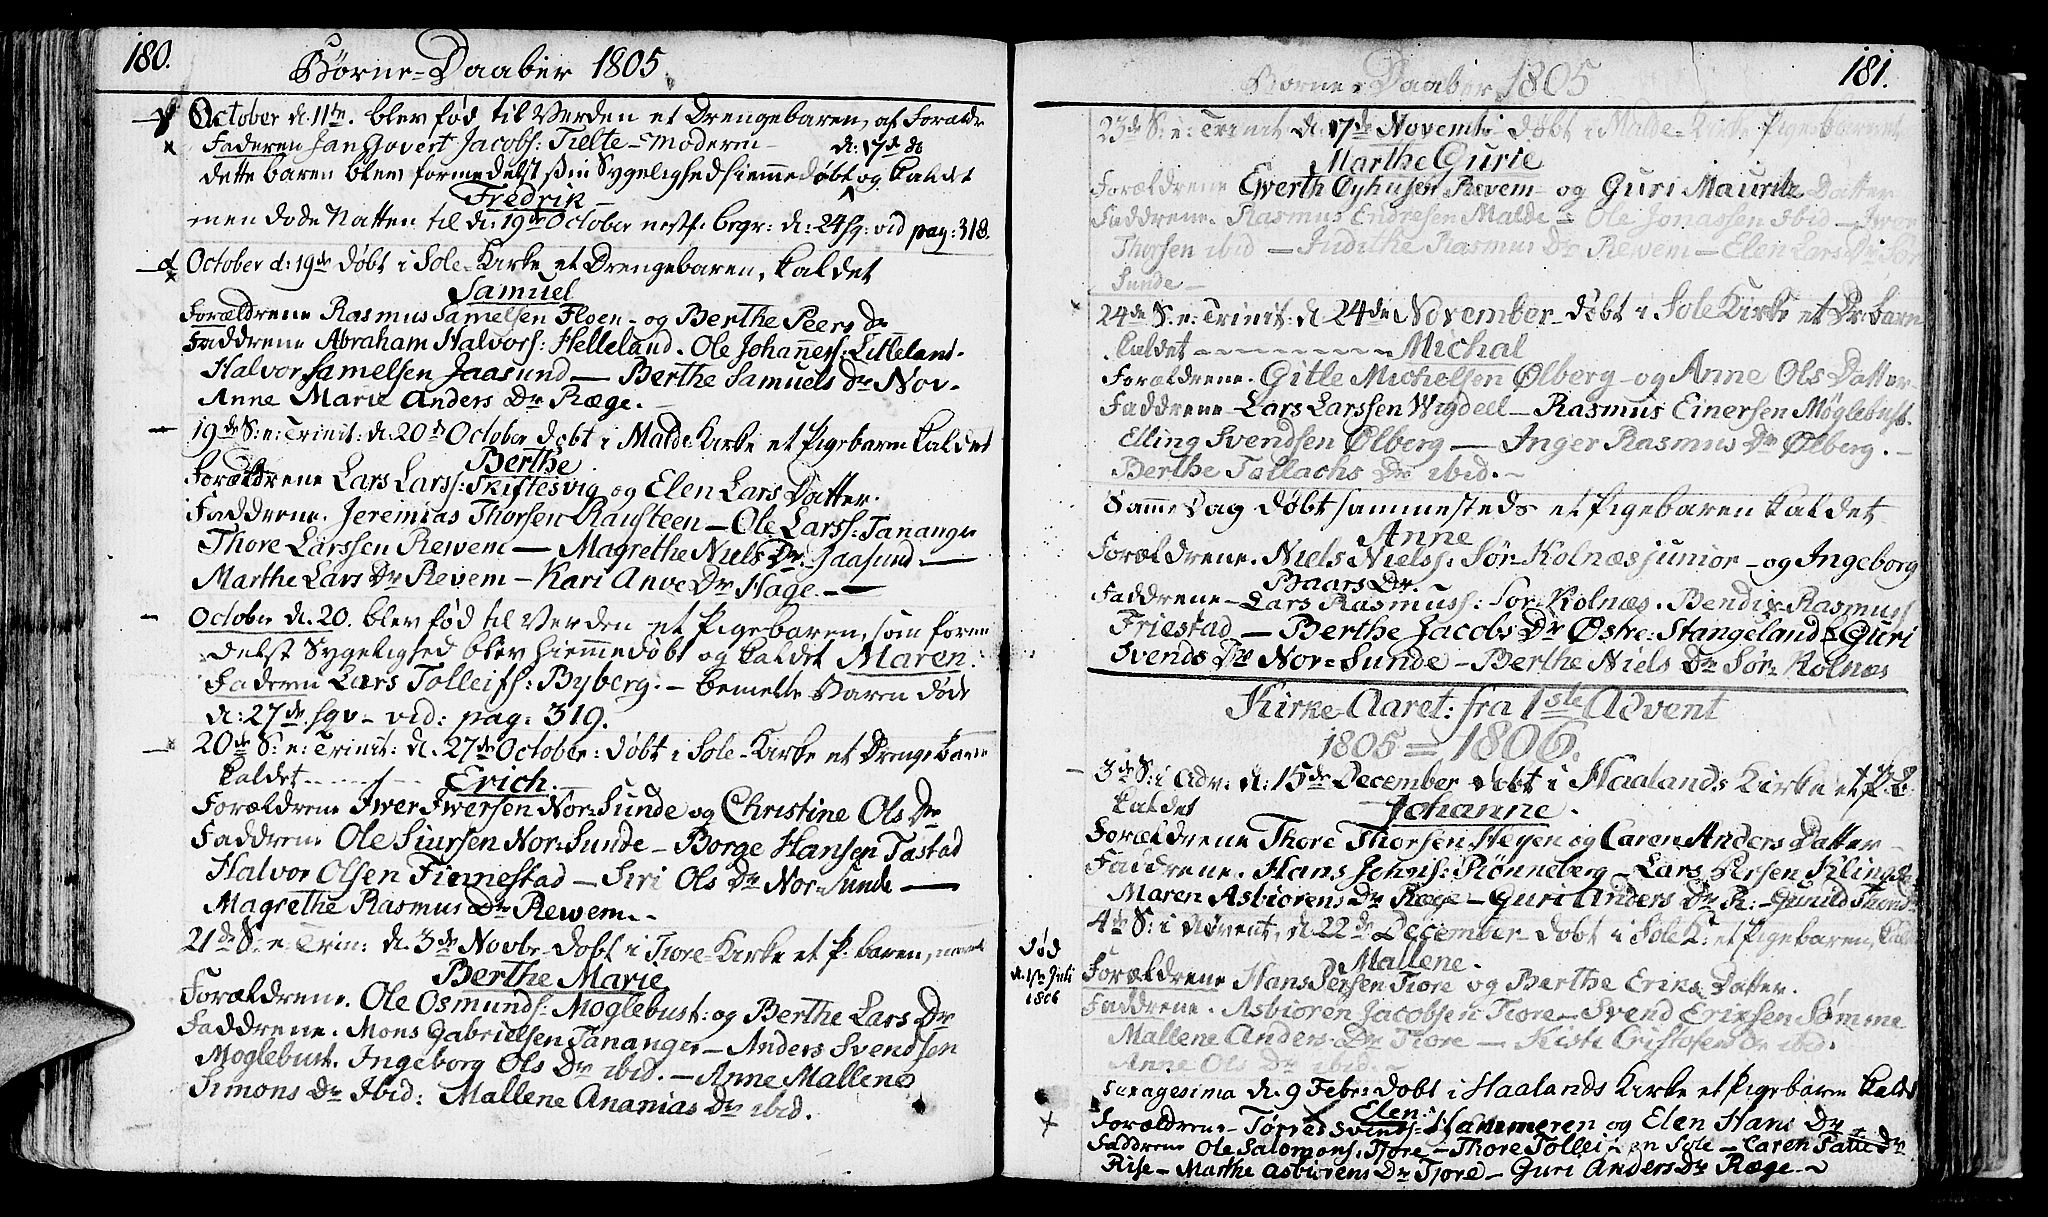 180.
Børne-Daaber 1805.
October d. 11te. blev fød til Verden et Drengebaren, af Forældr
Faderen Jan Govert Jacobs: Tielte - Moderen -
d: 17de do
dette baren blev formedelst sin Sygelighed hiemmedøbt og kaldet
Fredrik
men døde Natten til d. 19de October næstf. begr: d: 24 sq: vid pag: 318.
October d: 19de døbt i Sole-Kirke et Drengebaren, kaldet
Samuel
Forældrene Rasmus Samelsen Floen - og Berthe Peers Dr
Faddrene Abraham Halvors: Helleland. Ole Johannes: Litleland.
Halvor Samelsen Jaasund — Berthe Samuels Dr Nov.
Anne Marie Anders Dr Ræge. -
19de S: e: Trinit: d. 20d October døbt i Malde Kirke et Pigebarn kaldet
Berthe
Forældrene Lars Larss: Skiftesvig og Elen Lars Datter.
Fadderne. Jeremias Thorsen Rausteen — Ole Larss: Tananger
Thore Larssen Rewem — Magrethe Niels Dr. Jaasund —
Marthe Lars Dr Revem — Kari Anve Dr Hage. —
October d. 20. blev fød til Verden et Pigebaren, som forme
delst Sygelighed blev hiemmedøbt og kaldet Maren.
Faderen Lars Tolleifs: Byberg. — bemelte Baren døde
d: 27de sqv - vid: pag: 319.
20de S: e: Trinit: d. 27de October: døbt i Sole-Kirke et Drengebaren
kaldet - - - - Erich.
Forældrene Iwer Iwersen Nor=Sunde og Christine Ols Dr
Faddrene Ole Siursen Nor=Sunde — Borge Hansen Tastad
Halvor Olsen Finnestad — Siri Ols Dr Nor=Sunde —
Magrethe Rasmus Dr Rewem. -
21de S. e. Trin: d. 3de Novbr døbt i Tiore-Kirke et P. baren,
Berthe Marie
Forældrene. Ole Osmunds: Moglebust: og Berthe Lars Dr
Faddrene. Mons Gabrielsen Tananger — Anders Svendsen
Moglebust. Ingeborg Ols Dr ibid. — Anne Mallene
Simons Dr Ibid: Mallene Ananias Dr ibid.
181.
Børne-Daaber 1805
23de S: e: Trinit d. 17de Novemb: døbt i Malde-Kirke Pigebarnet
Marthe Gurie
Forældrene Ewerth Øyhusen Revem og Guri Mauritz Datter
Faddrene. Rasmus Endresen Malde — Ole Jonassen Ibid — Iver
Thorsen ibid — Judithe Rasmus Dr Rewem — Elen Lars Dr Sør
Sunde —
24de S. e: Trinit: d. 24de November døbt i Sole Kirke et Dr: barn
kaldet - - - - - - - Michal
Forældrene. Gitle Michelsen Ølberg og Anne Ols Datter
Faddrene - Lars Larssen Wigdeel — Rasmus Einersen Møglebust.
Elling Svendsen Ølberg — Inger Rasmus Dr Ølberg. —
Berthe Tollachs Dr ibid. —
Samme Dag døbt sammesteds et Pigebaren kaldet
Anne
Forældrene. Niels Nielss: Sør-Kolnæs junior — og Ingeborg
Baars Dr.
Faddrene — Lars Rasmuss: Sør-Kolnæs. Bendix Rasmuss
Friestad — Berthe Jacobs Dr Østre: Stangeland — Guri
Svends Dr Nor=Sunde — Berthe Niels Dr Sør Kolnæs
Kirke-Aaret: fra 1ste Advent
1805 = 1806.
3de S: i Adv. d. 15de December døbt i Haalands Kirke et P. B.
kaldet
Johanne.
Forældrene Thore Thorsen Stegen og Caren Anders Datter —
Faddrene. Hans Johns: Rønneberg — Lars
Maren Asbiorens Dr Ræge — Guri Anders Dr R. — Gunild
4de S: i Advent, d. 22de December døbt i Sole K: et Pigebaren, kaldt
Mallene.
Død
d. 1ste Juli
1806
Forældrene Hans Persen Tiore og Berthe Eriks Datter.
Faddrene. Asbioren Jacobsen Tiore — Svend Eriksen Sømme
Mallene Anders Dr Tiore — Kisti Cristofers Dr ibid.
Anne Ols Dr ibid. —
Sexagesima d. 9 Febr: døbt i Haalands Kirke et Pigebaren kaldt
Elen.
Forældrene — Tørres Svends: Hammeren og Elen Hans Dr
Faddrene Ole Salomons: Tjore — Thore Tolleifsen Sole — Caren Dr
Rise — Marthe Asbiorens Dr Tjore — Guri Anders Dr Ræge —